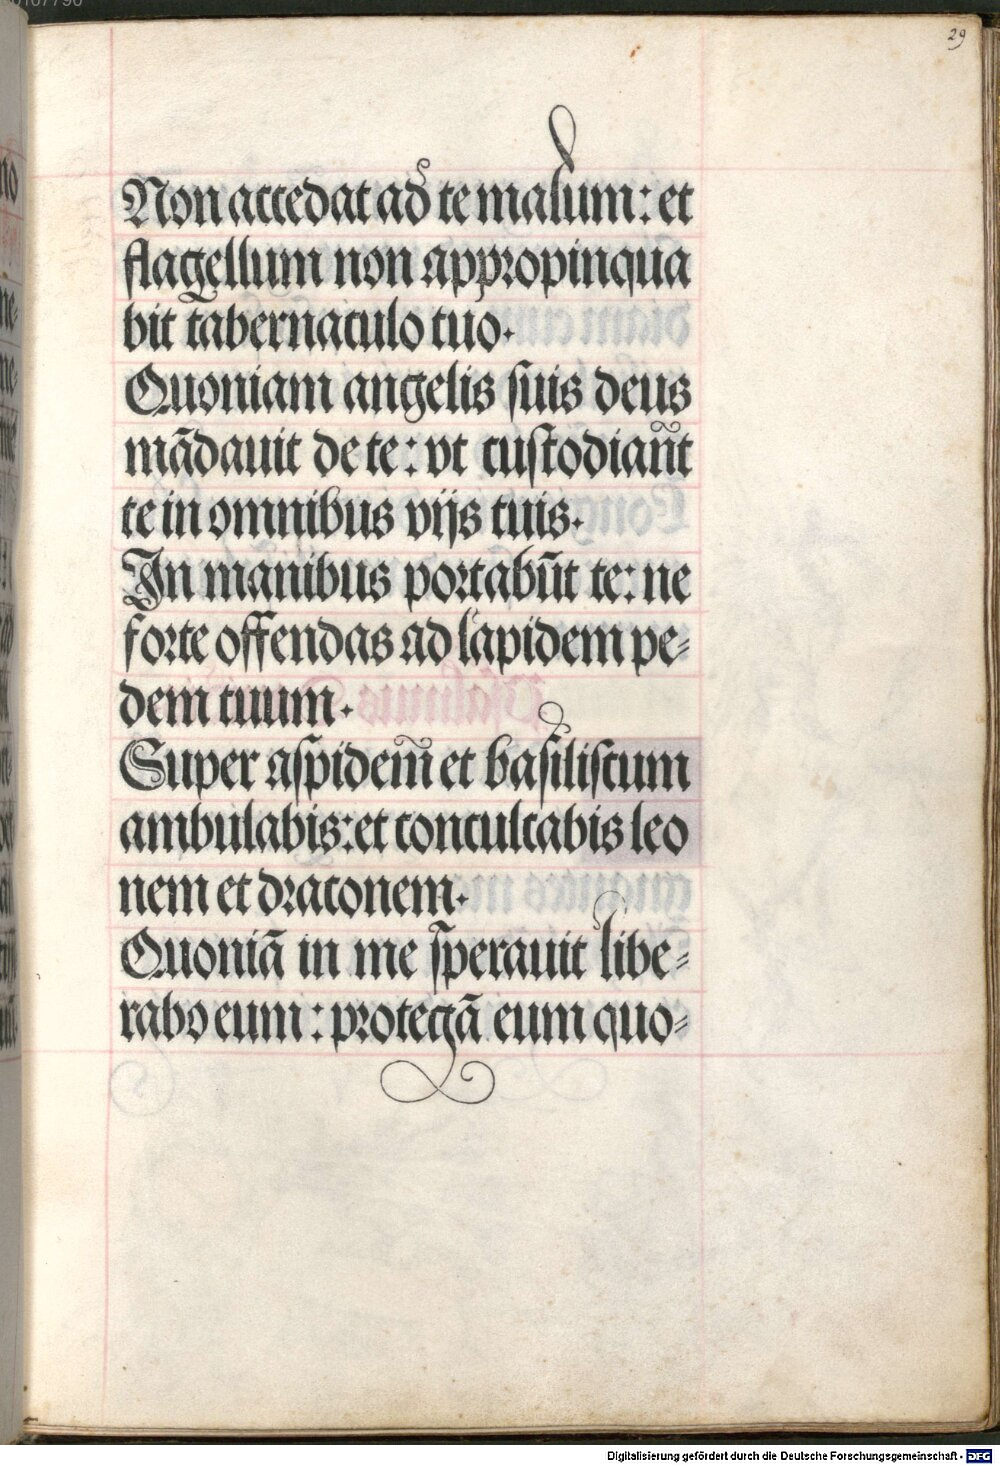 29
Non accedat ad te malum: et
flagellum non appropinqua
bit tabernaculo tuo.
Quoniam angelis suis deus
mādauit de te: vt custodiāt
te in omnibus viis tuis.
In manibus portabūt te: ne
forte offendas ad lapidem pe=
dem tuum.
Super aspidem̄ et basiliscum
ambulabis: et conculcabis leo
nem et draconem.
Quoniā in me sperauit libe=
rabo eum: protegā eum quo=
Digitalisierung gefördert durch die Deutsche Forschungsgemeinschaft - DFG